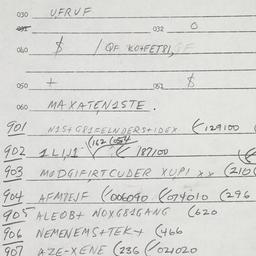 030 UFRUF
032 0
040 $ / QF KO+FET81,
050 +
052 $
060 MAXATEN1STE.
901 N1S+G81FELNDERS+1DEX (129100
(162 (054
902 1L1J1 (187100
903 MODGIFIRTCUDER XUPI XX (210
904 AFM7EJF (006090 (074010 (296
905 ALEOB+ NOXG81GANG (620
906 NEMENEMS+TEK+ (466
907 AZE-XENE (236 (021020